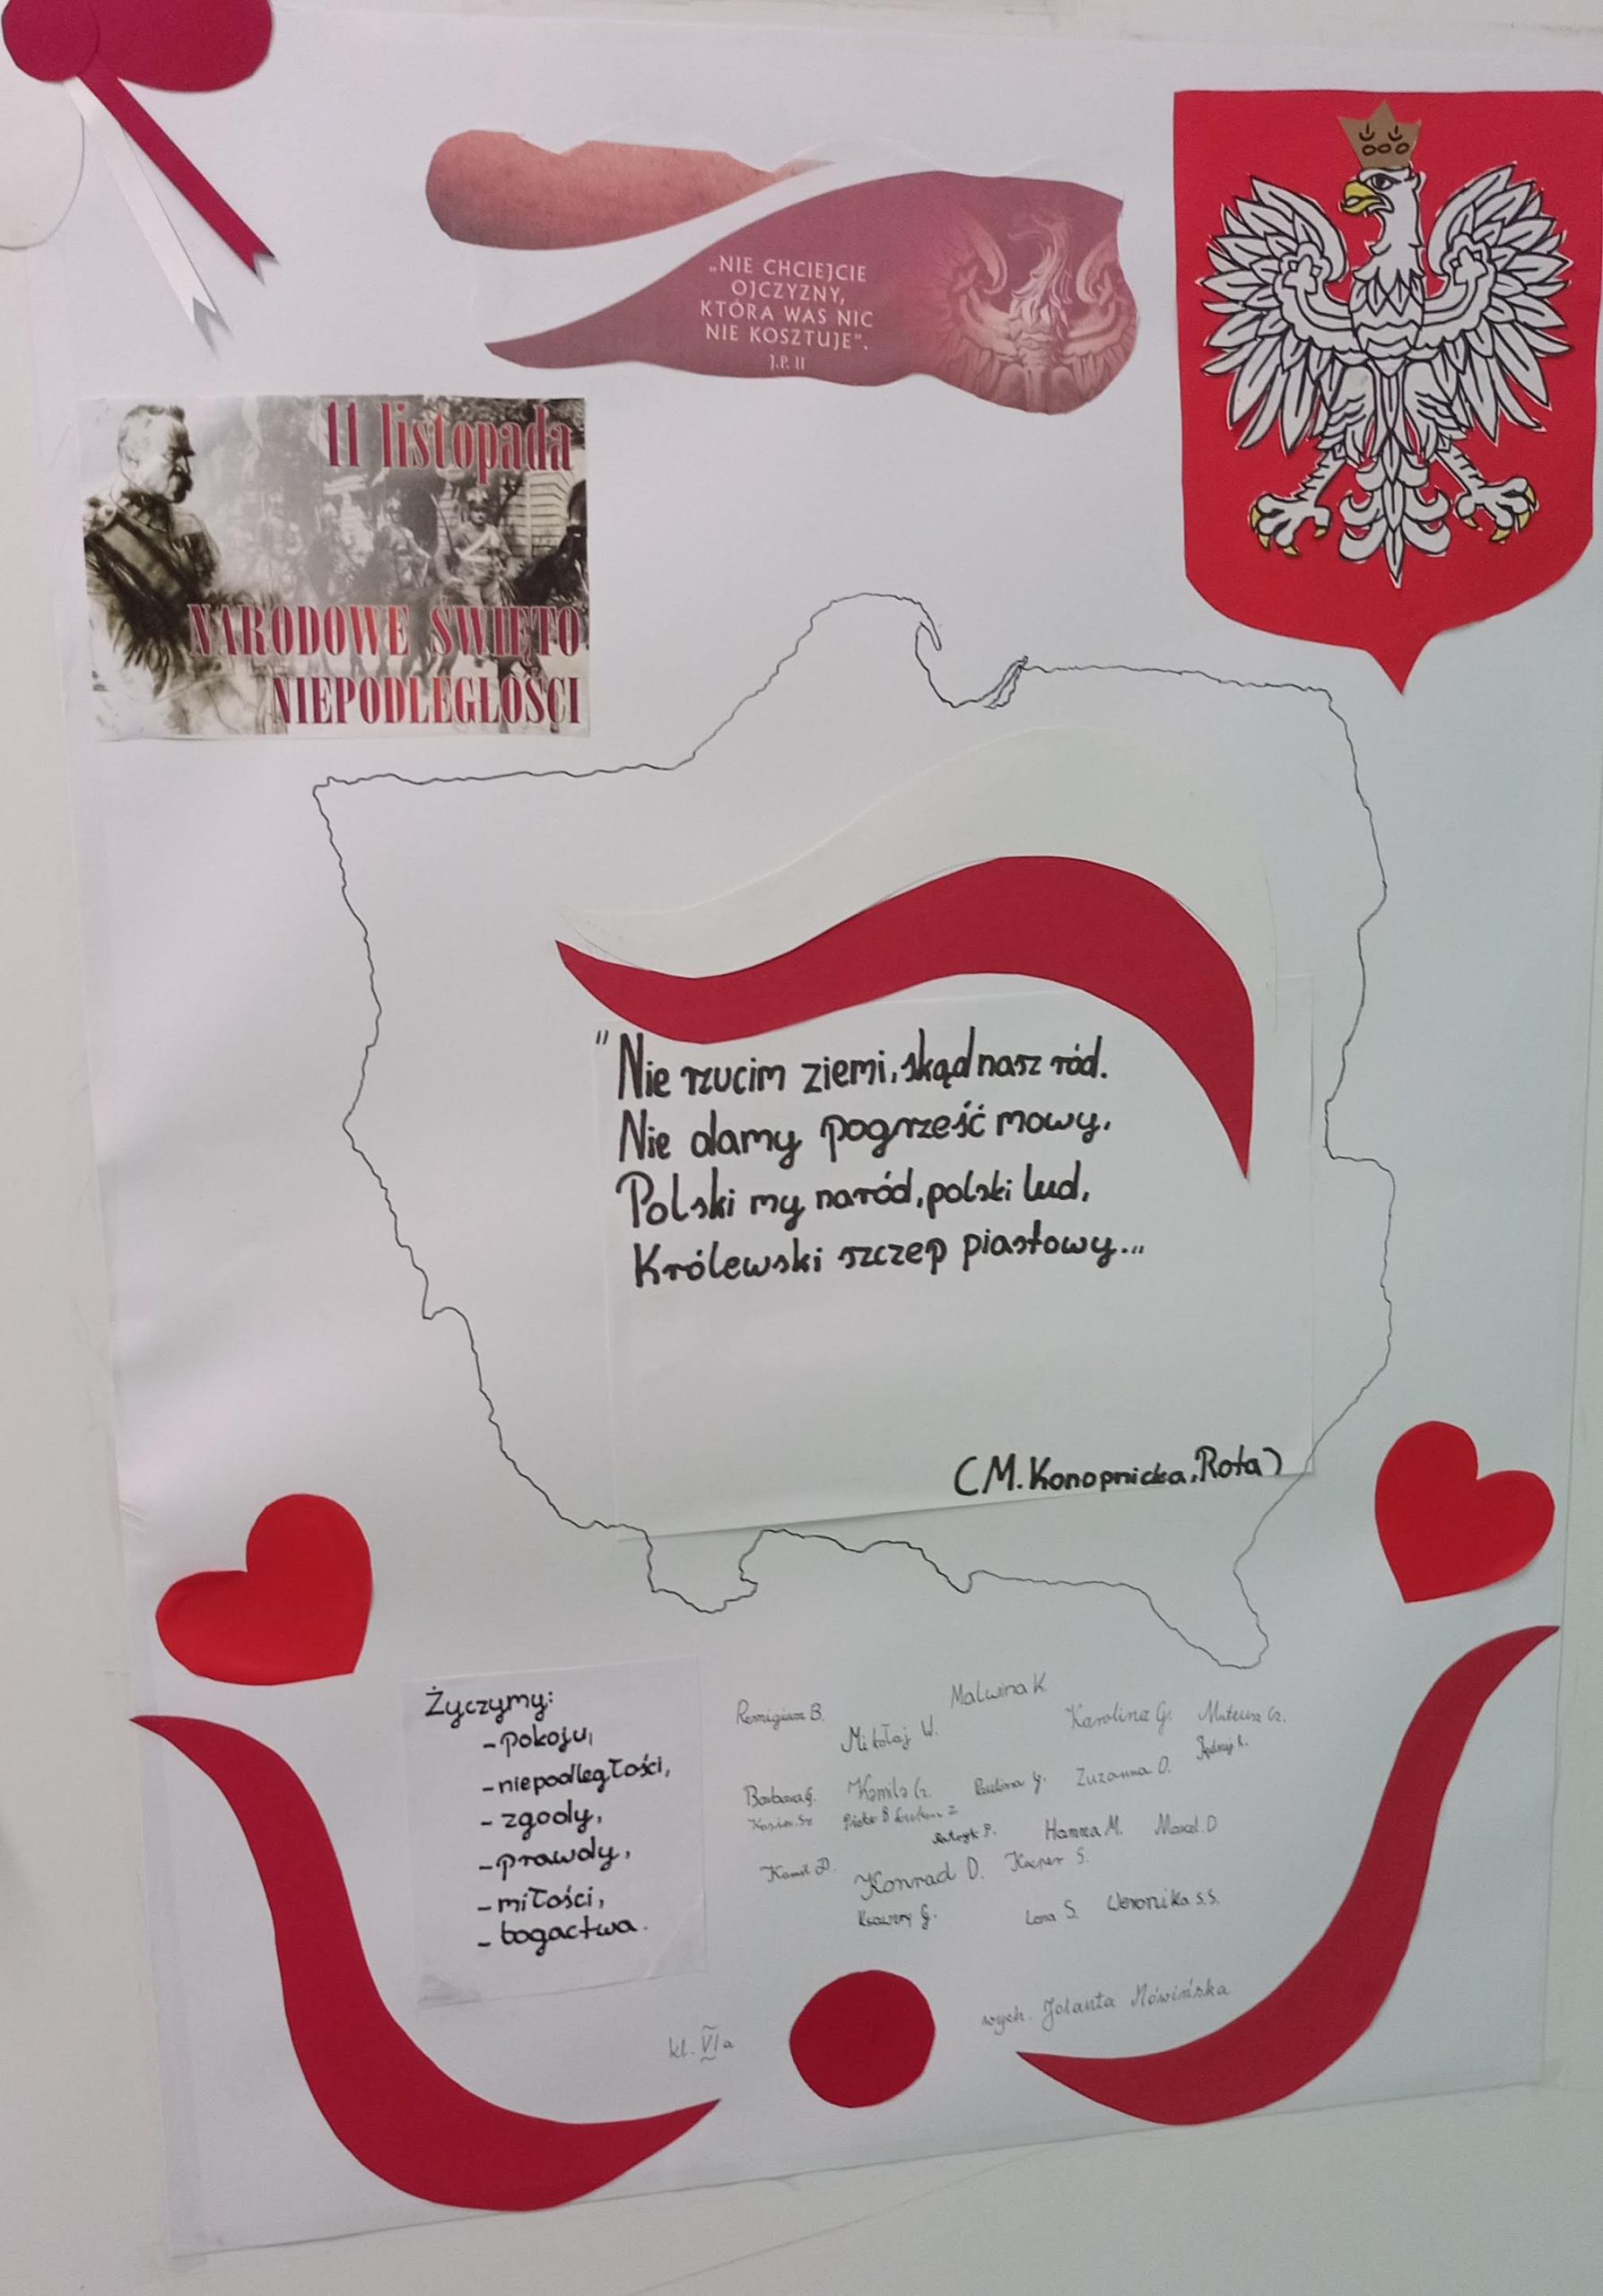 „NIE CHCIEJCIE
OJCZYZNY,
KTÓRA WAS NIC
NIE KOSZTUJE”.
J.P. II
11 listopada
NARODOWE ŚWIĘTO
NIEPODLEGŁOŚCI
"Nie rzucim ziemi, skąd nasz ród.
Nie damy pogrześć mowy,
Polski my naród, polski lud,
Królewski szczep piastowy...
(M. Konopnicka, Rota)
Życzymy:
- pokoju,
- niepodległości,
- zgody,
- prawdy,
- miłości,
- bogactwa.
Malwina K.
Remigiusz B.
Mikołaj W.
Karolina G.
Mateusz Cz.
Barbara G.
Kamila Cz.
Paulina G.
Zuzanna O.
Jędrzej K.
Piotr B.
Patryk P.
Hanna M.
Marcel. D
Kamil D.
Konrad D.
Kacper S.
Ksawery G.
Lena S.
Weronika S.S.
kl. VIa
wych. Jolanta Nowińska